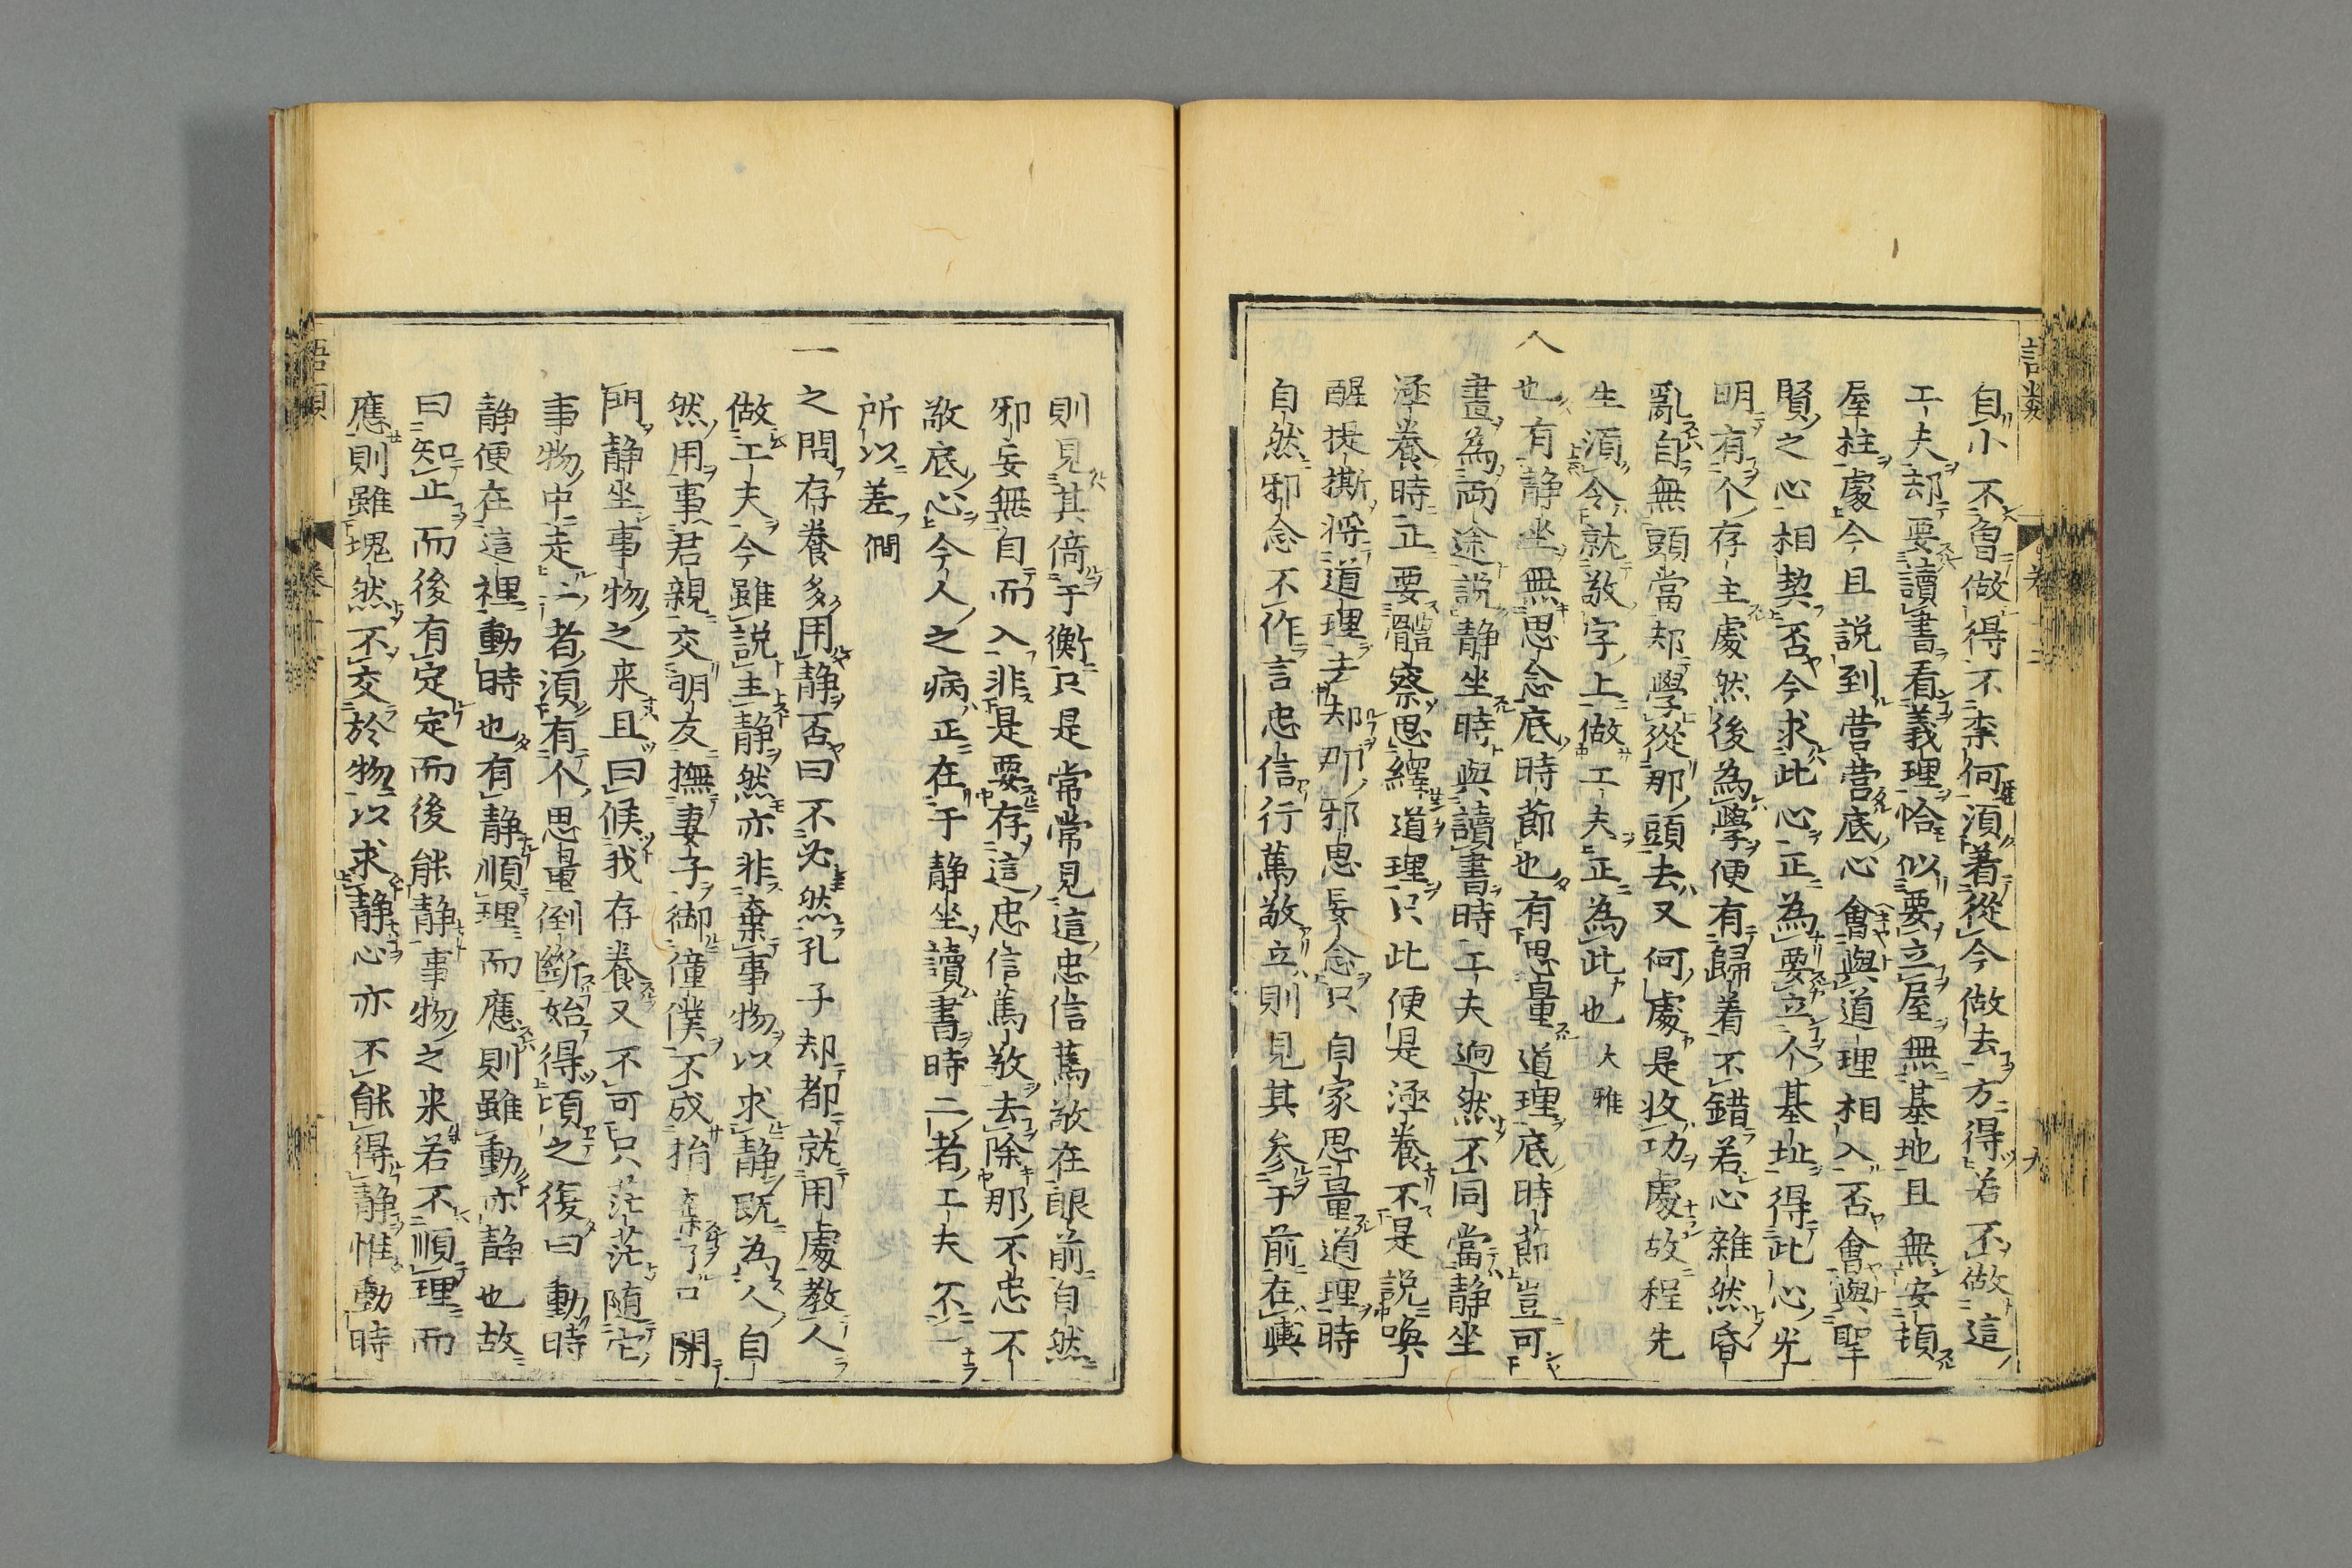 自小不曾做得不柰何須着從今做去方得若不做這
工夫却要讀書看義理恰似要立屋無基地且無安頓
屋柱處今且說到営営底心會與道理相入否會與聖
賢之心相契否今求此心正為要立个基址得此心光
明有个存主處然後為學便有歸着不錯若心雜然昏
亂自無頭當却學從那頭去又何處是收功處故程先
生須令就敬字上做工夫正為此也 大雅
人
也有静坐無思念底時節也有思量道理底時節豈可
畫為両途說静坐時與讀書時工夫迥然不同當静坐
涵養時正要體察思繹道理只此便是涵養不是說喚
醒提撕将道理去却那邪思妄念只自家思量道理時
自然邪念不作言忠信行篤敬立則見其参于前在輿
則見其倚于衡只是常常見這忠信篤敬在眼前自然
邪妄無自而入非是要存這忠信篤敬去除那不忠不
敬底心今人之病正在于静坐讀書時二者工夫不一
所以差 僩
一
之問存養多用静否曰不必然孔子却都就用處教人
做工夫今雖說主静然亦非棄事物以求静既為人自
然用事君親交朋友撫妻子御僮僕不成捐棄了只閉
門静坐事物之来且曰候我存養又不可只茫茫随它
事物中走二者須有个思量倒斷始得頃之復曰動時
静便在這裡動時也有静順理而應則雖動亦静也故
曰知止而後有定定而後能静事物之来若不順理而
應則雖塊然不交於物以求静心亦不能得静惟動時